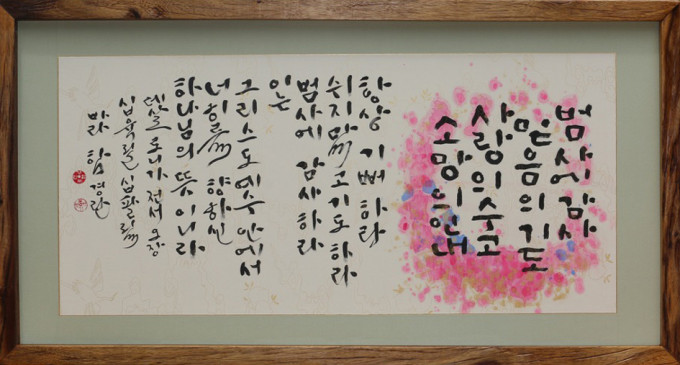 범사에 감사
믿음의 기도
사랑의 수고
소망의 인내
항상 기뻐하라
쉬지말고 기도하라
범사에 감사하라
이는
그리스도 예수 안에서
너희를 향하신
하나님의 뜻이니라
데살로니가 전서 오장
십육절 십팔절
경란